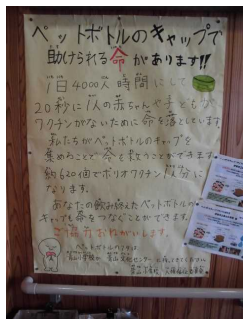 ペットボトルのキャップで
助けられる命があります!!
1日4000人 時間にして
20秒に1人の赤ちゃんや子ども が
ワクチンがないために命を落としています。
私たちがペットボトルのキャップを
集めることで命を救うことができます。
約620個でポリオワクチン1人分に
なります。
あなたの飲み終えたペットボトルの
キャップも命をつなぐことができます。
ご協力おねがいします。
ペットボトルのフタは